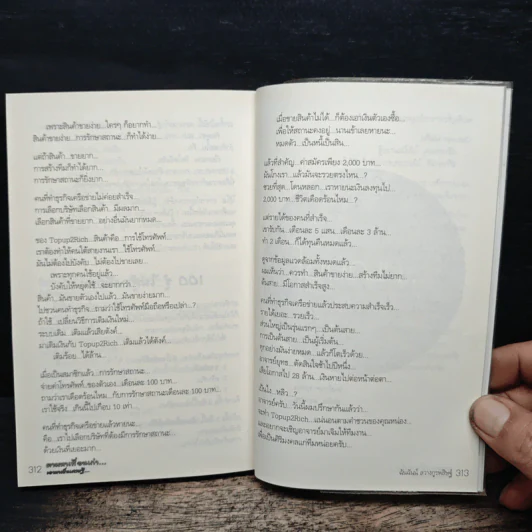 เพราะสินค้าขายง่าย...ใครๆ ก็อยากทำ...
สินค้าขายง่าย...การรักษาสถานะ...ก็ทำได้ง่าย...
แต่ถ้าสินค้า...ขายยาก...
การสร้างทีมก็ทำได้ยาก...
การรักษาสถานะก็ยิ่งยาก...
คนที่ทำธุรกิจเครือข่ายไม่ค่อยสำเร็จ...
การเลือกบริษัทเลือกสินค้า...มีผลมาก...
เลือกสินค้าที่ขายยาก...อย่างอื่นมันยากหมด...
ของ Topup2Rich...สินค้าคือ...การใช้โทรศัพท์...
เราต้องทำให้คนได้สายงานเรา...ใช้โทรศัพท์...
มันไม่ต้องไปบังคับ...ไม่ต้องไปขายเลย...
เพราะทุกคนใช้อยู่แล้ว...
บังคับให้หยุดใช้...จะยากกว่า...
สินค้า...มันขายตัวเองไปแล้ว...มันขายง่ายมาก...
ไปชวนคนทำธุรกิจ...ถามว่าใช้โทรศัพท์มือถือหรือเปล่า...?
ถ้าใช้...เปลี่ยนวิธีการเติมเงินใหม่...
ระบบเดิม...เติมแล้วเสียตังค์...
มาเติมเงินกับ Topup2Rich...เติมแล้วได้ตังค์...
เติมร้อย...ได้ล้าน...
เมื่อเป็นสมาชิกแล้ว...การรักษาสถานะ...
จ่ายค่าโทรศัพท์...ของตัวเอง...เดือนละ 100 บาท...
ถามว่าเราเดือดร้อนไหม...กับการรักษาสถานะเดือนละ 100 บาท...
เราใช้จริง...เกินนี้ไปเกือบ 10 เท่า...
คนที่ทำธุรกิจเครือข่ายแล้วหายนะ...
คือ...เราไปเลือกบริษัทที่ต้องมีการรักษาสถานะ...
ด้วยเงินที่เยอะมาก...
312
เมื่อขายสินค้าไม่ได้...ก็ต้องเอาเงินตัวเองซื้อ...
เพื่อให้สถานะคงอยู่...นานเข้าเลยหายนะ...
หมดตัว...เป็นหนี้เป็นสิน...
แล้วที่สำคัญ...ค่าสมัครเพียง 2,000 บาท...
มันโกงเรา...แล้วมันจะรวยตรงไหน...?
ช่วยที่สุด...โดนหลอก...เราหายนะเงินลงทุนไป...
2,000 บาท...ชีวิตเดือดร้อนไหม...?
แต่รายได้ของคนที่สำเร็จ...
เขารับกัน...เดือนละ 5 แสน...เดือนละ 3 ล้าน...
ทำ 2 เดือน...ก็ได้ทุนคืนหมดแล้ว...
ดูจากข้อมูลแวดล้อมทั้งหมดแล้ว...
ผมเห็นว่า...ควรทำ...สินค้าขายง่าย...สร้างทีมไม่ยาก...
ต้นสาย...มีโอกาสสำเร็จสูง...
คนที่ทำธุรกิจเครือข่ายแล้วประสบความสำเร็จเร็ว...
รายได้เยอะ...รวยเร็ว...
ส่วนใหญ่เป็นรุ่นแรกๆ...เป็นต้นสาย...
การเป็นต้นสาย...เป็นผู้เริ่มต้น...
ทุกอย่างมันง่ายหมด...แล้วก็โตเร็วด้วย...
อาจารย์ยุทธ...ตัดสินใจช้าไปปีหนึ่ง...
เสียโอกาสไป 28 ล้าน...เงินหายไปต่อหน้าต่อตา...
เป็นไง...หลิว...?
อาจารย์ครับ...วันนี้ผมปรึกษากันแล้วว่า...
จะทำ Topup2Rich...แน่นอนตามคำชวนของคุณหน่อง...
และอยากจะเชิญอาจารย์มาเริ่มให้ทีมงาน...
เพื่อเป็นสิริมงคลแก่ทีมหน่อยครับ...
313